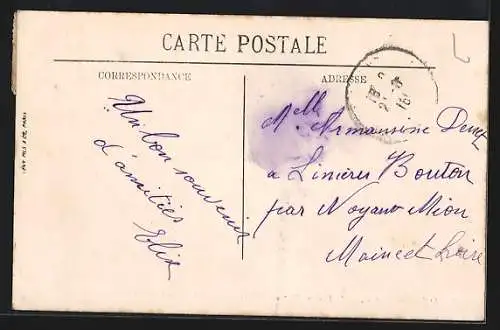 CARTE POSTALE
CORRESPONDANCE
ADRESSE
Un bon souvenir
d'amitiés
Elix
Melle Armansine
à Linières Bouton
par Noyant Mion
Maine et Loire